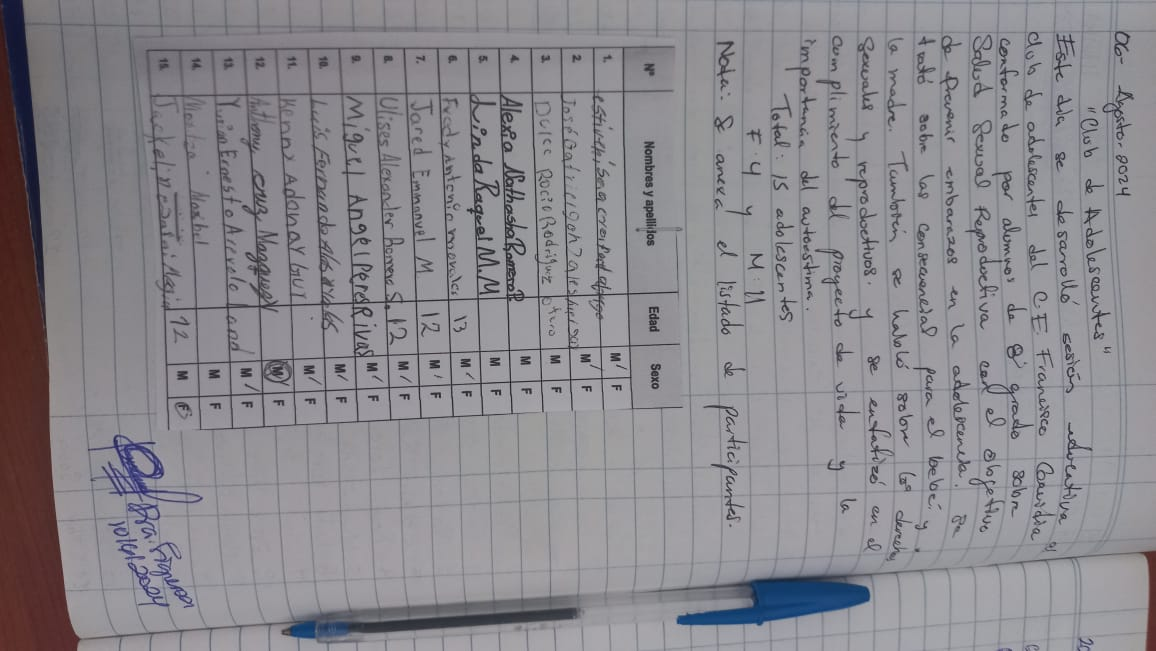 06-Agosto-2024
"Club de Adolescentes"
Este dia se desarrolló sesión educativa al
club de adolescentes del C.E Francisco
conformado por alumnos de 8° grado sobre
Salud Sexual Reproductiva con el objetivo
de Prevenir embarazos en la adolescencia. Se
trató sobre las consecuencias para el bebé, y
la madre. También se habló sobre los derechos
sexuales y reproductivos. y se enfatizó en el
cumplimiento del proyecto de vida y la
importancia del autoestima.
Total: 15 adolescentes
F: 4 y M: 11
Nota: Se anexa el listado de participantes.
N° Nombres y apellidos Edad Sexo
1. M / F
2. José M / F
3. Dulce Rocio Rodriguez M F
4. Alexia Nathasha Romero P. M F
5. Linda Raquel M.M M F
6. Fredy Antonio morales 13 M / F
7. Jared Emmanuel M 12 M / F
8. Ulises Alexander Romero S. 12 M / F
9. Miguel Angel Peres Rivas M / F
10. Luis Fernando M / F
11. Kenny Adonay GUT M / F
12. Anthony cruz M / F
13. Ernesto Arevalo M / F
14. Maribel M F
15. Jackelin 12 M F
Dra. Figueroa